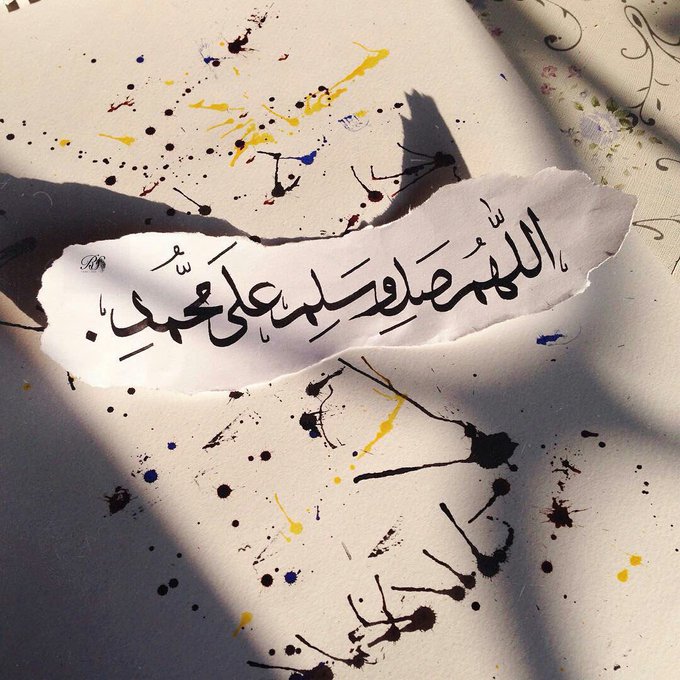 اللَّهُمَّ صَلِ وَسَلِم عَلَى مُحَمَّدِ.